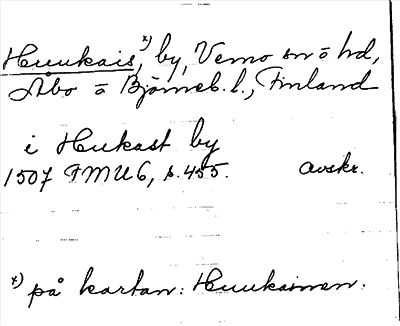 Huukais*), by, Vemo sn o hd,
Åbo o Björneb. l., Finland
i Hukast by
1507 FMU6, s. 455. avskr.
*) på kartan: Huukainen.